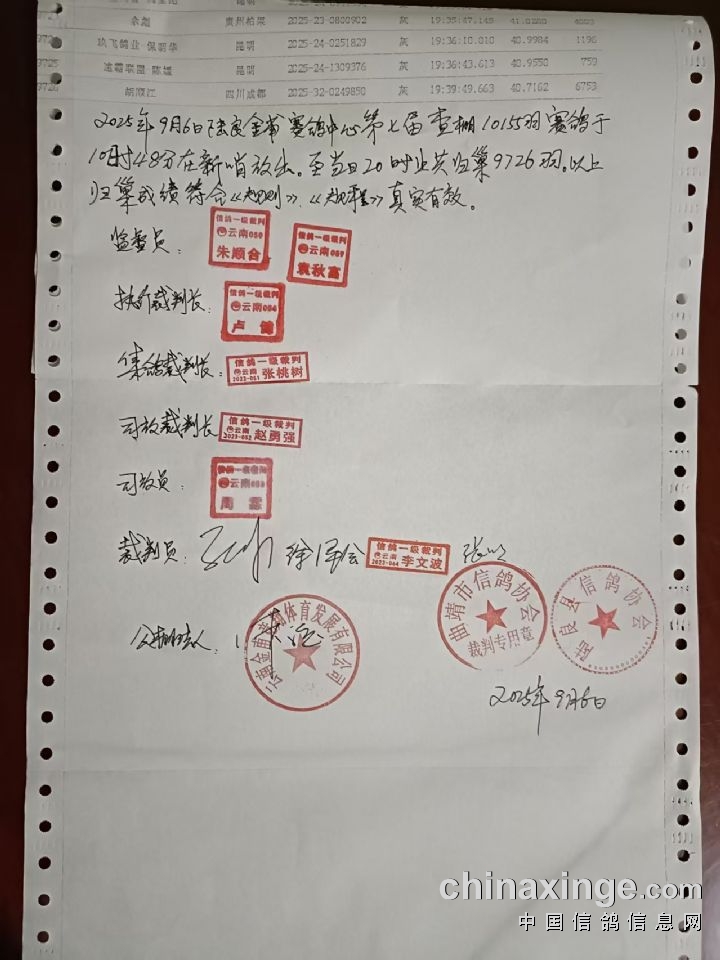 余彪 贵州柏果 2025-23-0800902 灰 19:35:47.148 41.0280 4003
玖飞鸽业-保明华 昆明 2025-24-0251829 灰 19:36:10.010 40.9984 1196
9725 速霸联盟-陈媛 昆明 2025-24-1309376 灰 19:36:43.613 40.9550 759
9726 胡顺江 四川成都 2025-32-0249850 灰 19:39:49.663 40.7162 6753
2025年9月6日陆良金甫赛鸽中心第七届查棚10155羽赛鸽于
10时48分在新哨放出。至当日20时止共归巢9726羽。以上
归巢成绩符合《规则》、《规程》真实有效。
监督员:
信鸽一级裁判
云南050
朱顺合
信鸽一级裁判
云南057
袁秋富
执行裁判长:
信鸽一级裁判
云南054
卢健
集鸽裁判长:
信鸽一级裁判
云南
2023-051 张桃树
司放裁判长
信鸽一级裁判
云南
2023-052 赵勇强
司放员:
云南
周
裁判员:
信鸽一级裁判
云南
2023-064 李文波
公棚负责人:
体育发展有限公司
曲靖市信鸽协会
裁判专用章
陆良县信鸽协会
2025年9月6日
chinaxinge.com
中国信鸽信息网